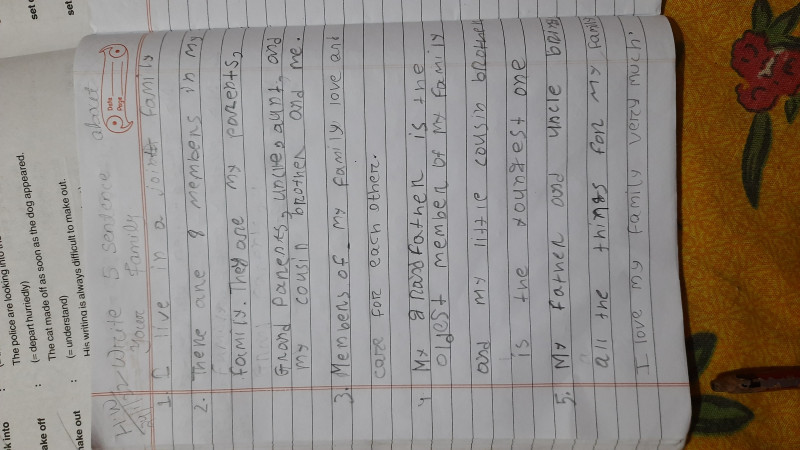 set
set
The police are looking into the
(= depart hurriedly)
The cat made off as soon as the dog appeared.
(= understand)
His writing is always difficult to make out.
k into :
ake off :
ake out :
Date
Page
H.W write 5 sentence about
Your Family
1 I live in a joint family
2. There are 8 members in my
family. They are my parents,
Grand parents, uncle, aunt, and
my cousin brother and me.
3. Members of my family love and
care for each other.
4 My grandfather is the
oldest member of my family
and my little cousin brother
is the youngest one
5. My father and uncle bring
all the things for my family
I love my family very much.